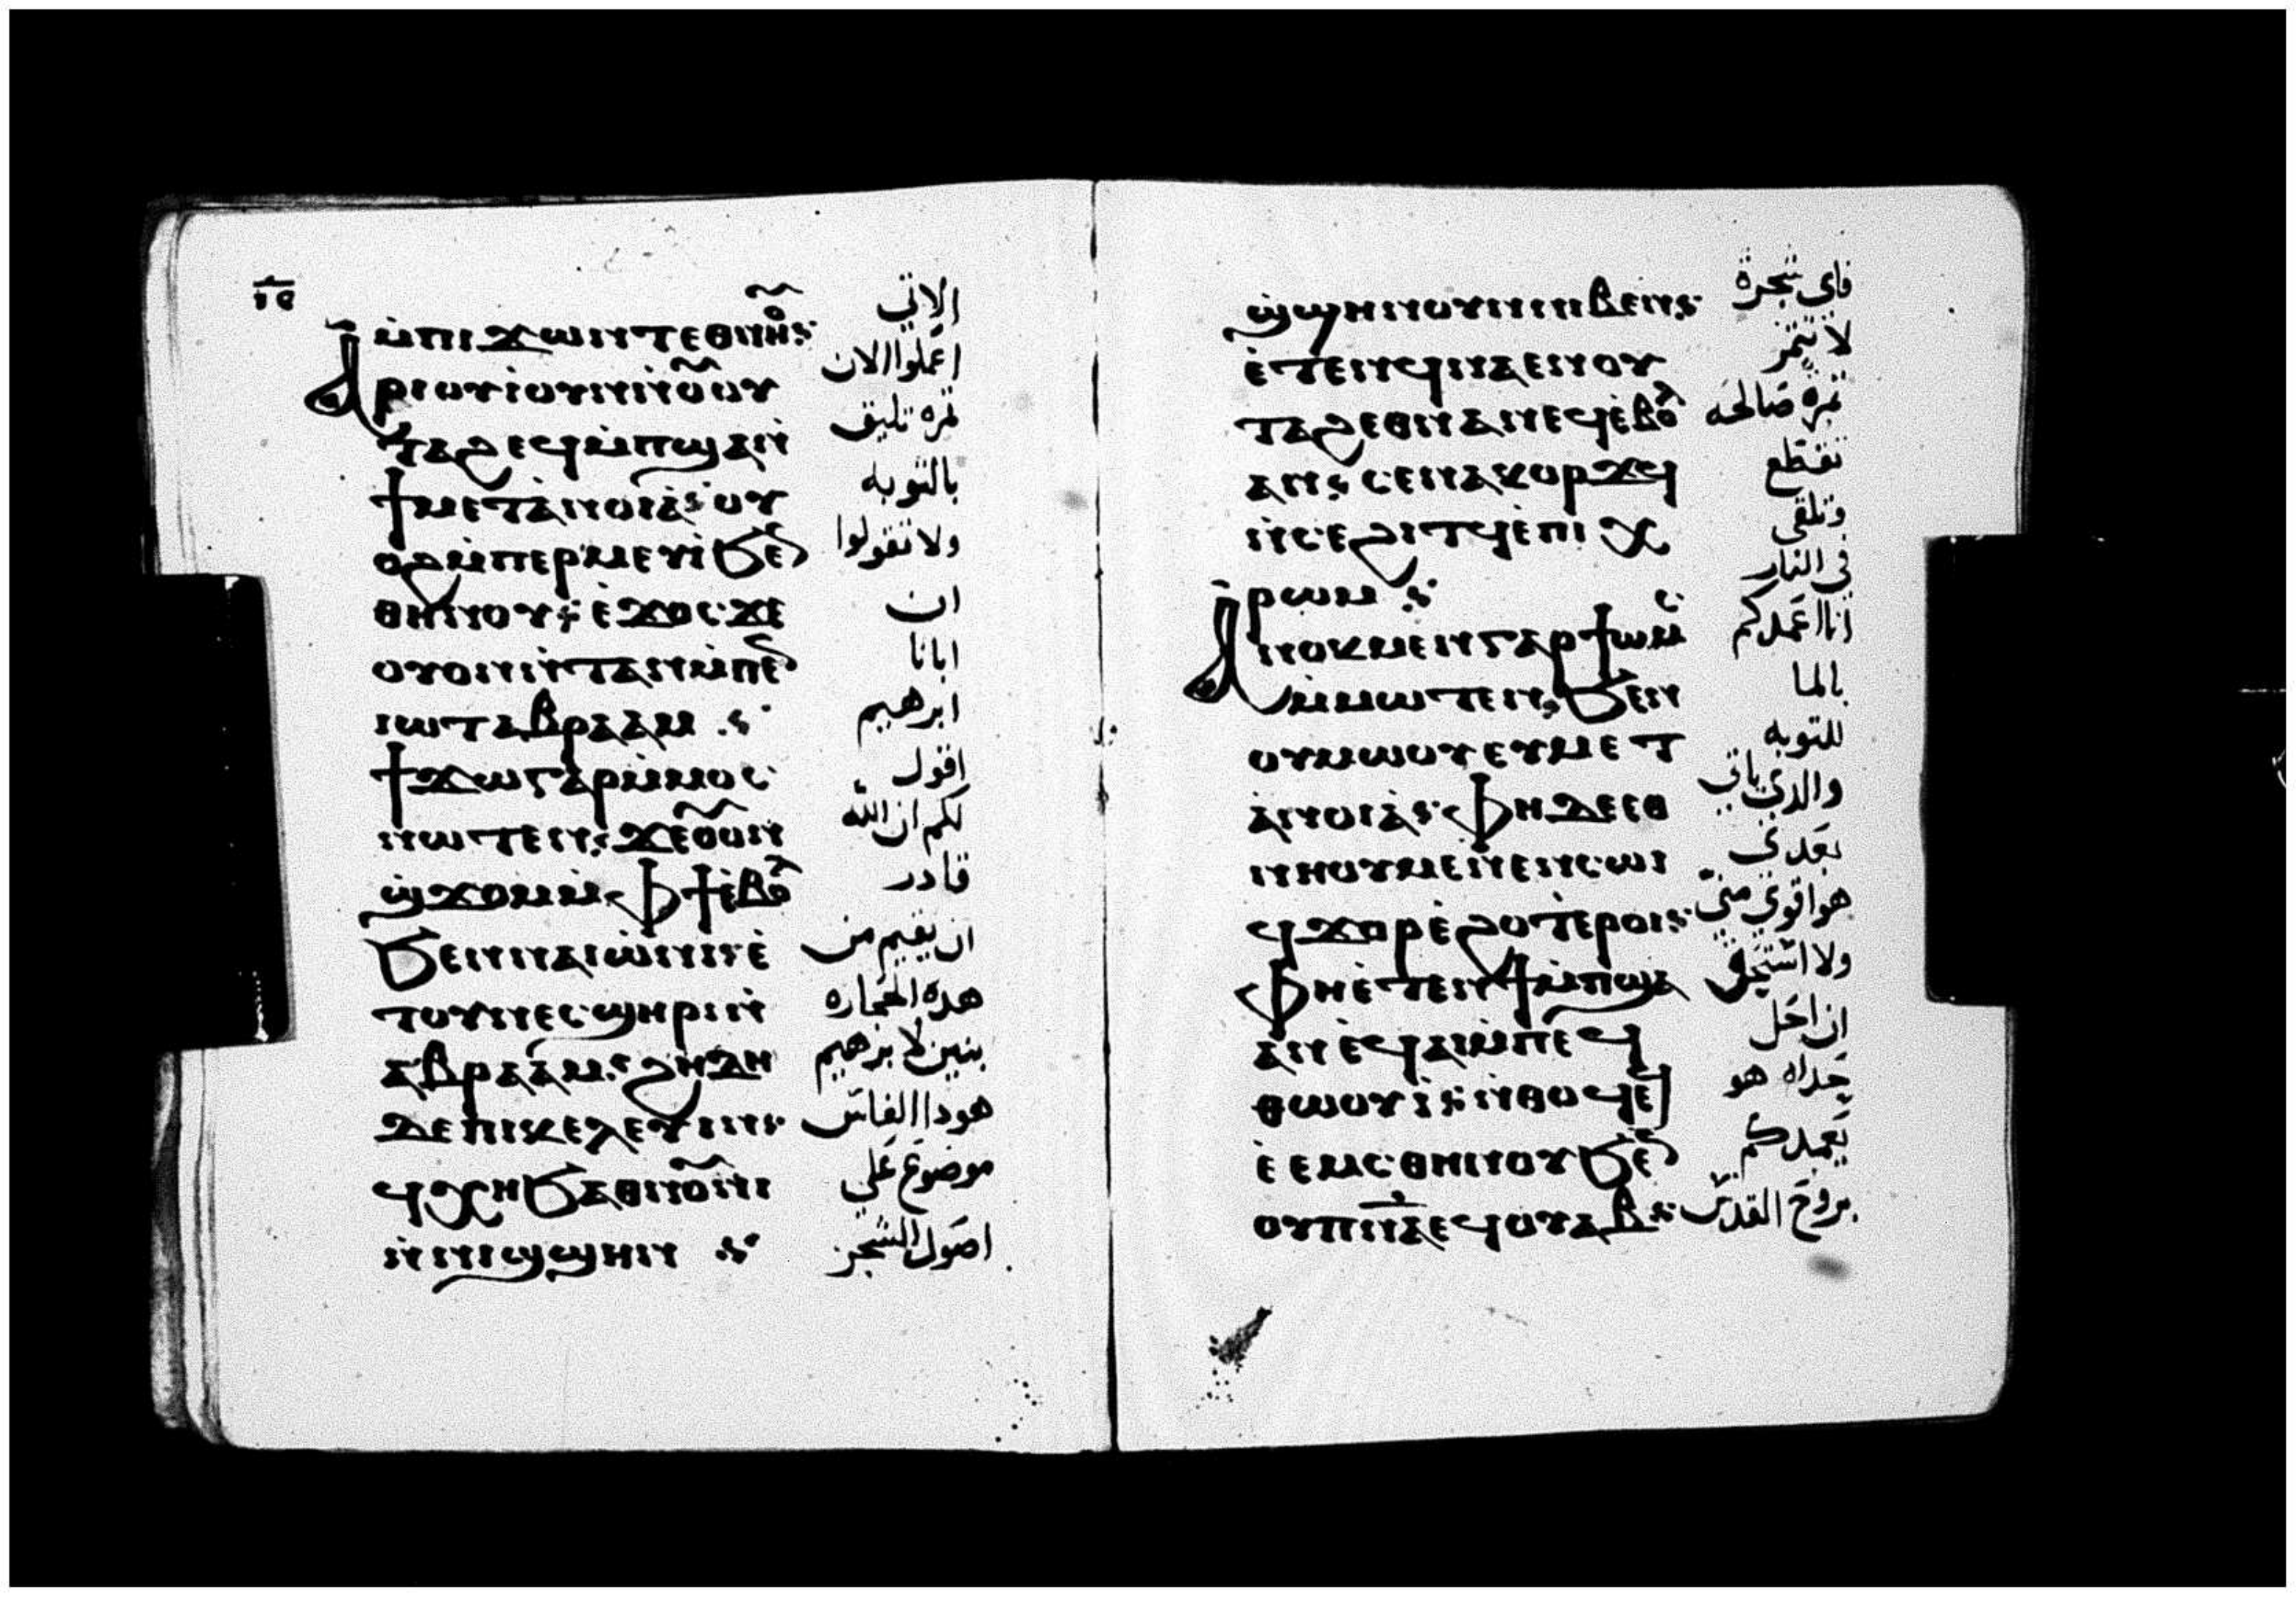 ⲓⲉ
ⲙ̇ⲡⲓϫⲱⲛⲧⲉⲑⲛⲏⲟ̃ⲩ
الاتي
Ⲁⲣⲓⲟⲩⲓ̀ⲟⲩⲛⲓⲛ̇ⲟ̃ⲩⲟⲩ
اعملوا الان
ⲧⲁϩⲉϥⲙ̇ⲡϣⲁⲛ̇
ثمره تليق
ϯⲙⲉⲧⲁ̀ⲛⲟⲓⲁ̀ⲥ ⲟⲩ
بالتوبه
ⲟϩⲙ̇ⲡⲉⲣⲙⲉⲩⲓ̀ϧⲉ̄
ولا تقولوا
ⲑⲏⲛⲟⲩ ⲉ̀ϫⲟⲥϫⲉ
ان
ⲟⲩⲟⲛⲛ̇ⲧⲁⲛⲙ̇ⲡⲉ̄
ابانا
ⲓⲱⲧⲁⲃⲣⲁⲁⲙ
ابرهيم
ϯϫⲱⲅⲁⲣⲙ̇ⲙⲟⲥ
اقول
ⲛⲱⲧⲉⲛ ϫⲉⲟ̃ⲩⲟⲛ
لكم ان الله
ϣ̇ϫⲟⲙⲙ̇ⲫϯⲉ̀ⲃⲟ̄
قادر
ϧⲉⲛⲛⲁⲓⲱ̀ⲛⲓ ⲉ̀
ان يقيم من
ⲧⲟⲩⲛⲉⲥϣⲏⲣⲓⲛ̇
هده الحجاره
ⲁⲃⲣⲁⲁⲙ ϩⲏⲇⲏ
بنين لابرهيم
ⲇⲉⲡⲓⲕⲉⲗⲉⲩⲓⲛ
هودا الفاس
ϥⲭⲏϧⲁⲑⲛⲟ̃ⲩⲛⲓ
موضوع علي
ⲛ̇ⲛⲓϣϣⲏⲛ
اصول الشجر
ϣ̇ϣⲏⲛⲟⲩⲛⲓⲃⲉⲛ
فاي شجرة
ⲉ̀ⲧⲉⲛϥⲛⲁⲉⲛⲟⲩ
لا تثمر
ⲧⲁϩⲉⲑⲛⲁⲛⲉϥⲉ̀ⲃⲟ̄
ثمره صالحه
ⲁⲛ ⲥⲉⲛⲁⲕⲟⲣϫϥ
تقطع
ⲛ̇ⲥⲉϩⲓⲧϥⲉ̀ⲡⲓⲭ
وتلقي
ⲣⲱⲙ
في النار
Ⲁⲛⲟⲕⲙⲉⲛⲅⲁⲣϯⲱⲙⲥ
انا اعمدكم
ⲙ̇ⲙⲱⲧⲉⲛ ϧⲉⲛ
بالما
ⲟⲩⲙⲱⲟⲩⲉⲩⲙⲉⲧ
للتوبه
ⲁ̀ⲛⲟⲓⲁ̀ⲥ ⲫⲏⲇⲉⲉⲑ
والدي ياتي
ⲛⲏⲟⲩⲙⲉⲛ̇ⲉⲛⲥⲱⲓ
بعدي
ϥϫⲟⲣⲉ̀ϩⲟⲧⲉ̀ⲣⲟⲓ
هو اقوي مني
ⲫⲏⲉ̀ⲧⲉⲛϯⲙ̇ⲡϣⲁ
ولا استحق
ⲁⲛⲉ̀ϥⲁⲓⲙ̇ⲡⲉϥ
ان احل
ⲑⲱⲟⲩⲓ̀ ⲛ̇ⲑⲟϥⲉ
حداه هو
ⲉ̀ⲉⲙⲥⲑⲏⲛⲟⲩϧⲉ̄
يعمدكم
ⲟⲩⲡⲛ̅ⲁ̅ⲉϥⲟⲩⲁⲃ
بروح القدس